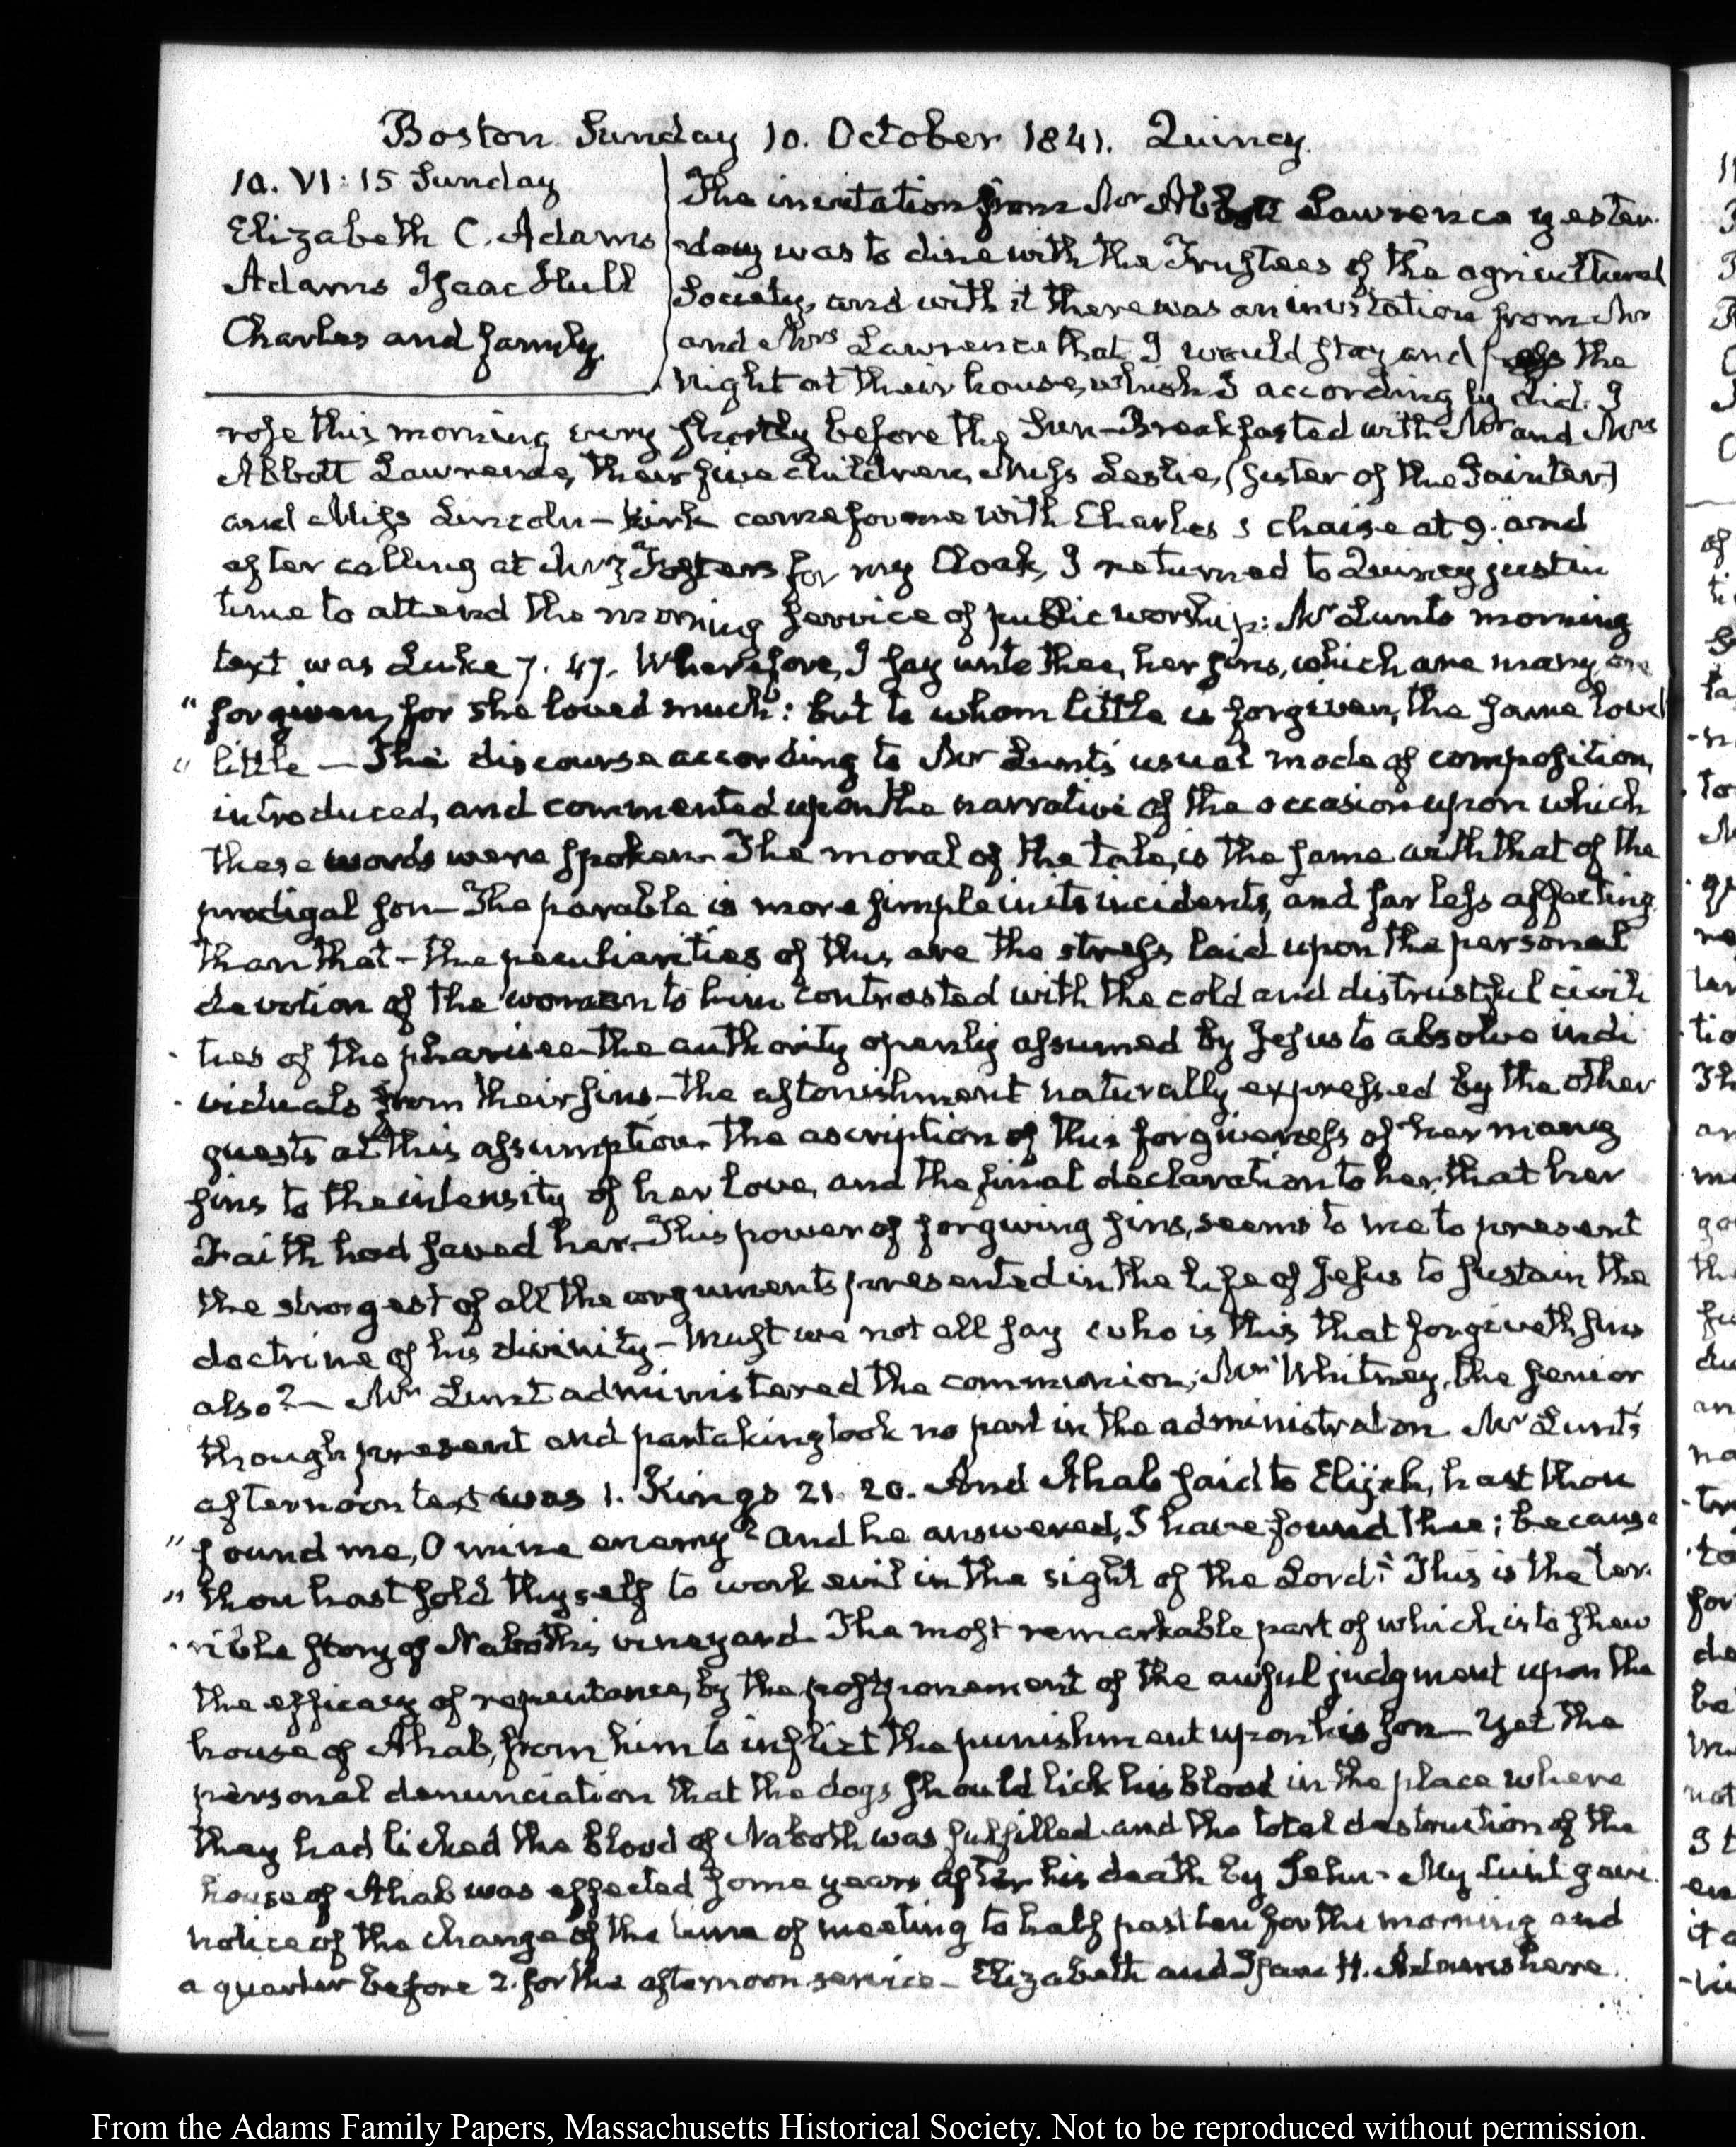 Boston Sunday 10. October 1841. Quincy.
10. VI:15 Sunday
Elizabeth C. Adams
Adams Isaac Hull
Charles and family.
The invitation from Mr Abbott Lawrence yester-
day was to dine with the Trustees of the agricultural
Society, and with it there was an invitation from Mr
and Mrs Lawrence that I would stay and pass the
night at their house, which I accordingly did. I
rose this morning very shortly before the Sun—Breakfasted with Mr and Mrs
Abbott Lawrence, their five children, Miss Leslie, (sister of the Painter)
and Miss Lincoln—Kirk came for me with Charles's chaise at 9. and
after calling at Mrs Fosters for my Cloak, I returned to Quincy just in
time to attend the morning service of public worship: Mr Lunts morning
text was Luke 7. 47. Wherefore, I say unto thee, her sins, which are many, are
" forgiven, for she loved much: but to whom little is forgiven, the same loveth
" little—The discourse according to Mr Lunt's usual mode of composition,
introduced, and commented upon the narrative of the occasion upon which
these words were spoken—The moral of the tale, is the same with that of the
prodigal son—The parable is more simple in its incidents, and far less affecting
than that—the peculiarities of this are the stress laid upon the personal
devotion of the woman to him contrasted with the cold and distrustful civili
- ties of the pharisee—the authority openly assumed by Jesus to absolve indi
- viduals from their sins—the astonishment naturally expressed by the other
guests at this assumption—the ascription of this forgiveness of her many
sins to the intensity of her love, and the final declaration to her, that her
Faith had saved her—This power of forgiving sins, seems to me to present
the strongest of all the arguments presented in the life of Jesus to sustain the
doctrine of his divinity—Must we not all say who is this that forgiveth sins
also?—Mr Lunt administered the communion; Mr Whitney, the senior
though present and partaking took no part in the administration Mr Lunt's
afternoon text was 1. Kings 21. 20. And Ahab said to Elijah, hast thou
" found me, O mine enemy? and he answered, I have found thee; because
" thou hast sold thyself to work evil in the sight of the Lord." This is the ter-
- rible story of Naboth's vineyard—The most remarkable part of which is to shew
the efficacy of repentance, by the postponement of the awful judgment upon the
house of Ahab, from him to inflict the punishment upon his son—Yet the
personal denunciation that the dogs should lick his blood in the place where
they had licked the blood of Naboth was fulfilled and the total destruction of the
house of Ahab was effected some years after his death by Jehu—Mr Lunt gave
notice of the change of the time of meeting to half past ten for the morning and
a quarter before 2. for the afternoon service—Elizabeth and Isaac H. Adams here.
From the Adams Family Papers, Massachusetts Historical Society. Not to be reproduced without permission.